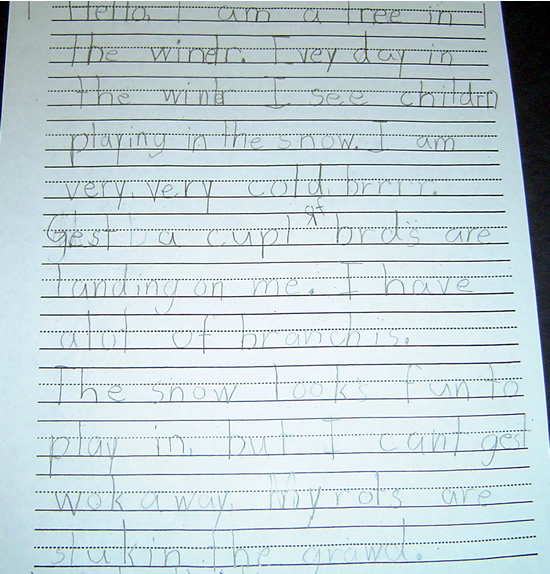 Hello. I am a tree in
the windr. Evey day in
the windr I see childrn
playing in the snow. I am
very, very cold, brrrr.
Gest a cupl of brds are
landing on me. I have
alot of branchis.
The snow looks fun to
play in, but I cant gest
wok away. My rots are
stuk in the grawd.